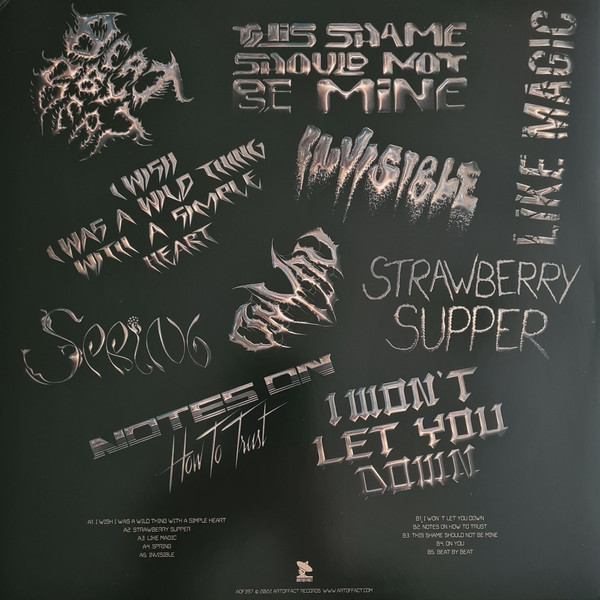 BEAT
BY
BEAT
THIS SHAME
SHOULD NOT
BE MINE
LIKE MAGIC
I WISH
I WAS A WILD THING
WITH A SIMPLE
HEART
INVISIBLE
ON YOU
STRAWBERRY
SUPPER
SPRING
NOTES ON
How To Trust
I WON'T
LET YOU
DOWN
A1. I WISH I WAS A WILD THING WITH A SIMPLE HEART
A2. STRAWBERRY SUPPER
A3. LIKE MAGIC
A4. SPRING
A5. INVISIBLE
B1. I WON'T LET YOU DOWN
B2. NOTES ON HOW TO TRUST
B3. THIS SHAME SHOULD NOT BE MINE
B4. ON YOU
B5. BEAT BY BEAT
ARTOFFACT
AOF397 © 2022 ARTOFFACT RECORDS WWW.ARTOFFACT.COM